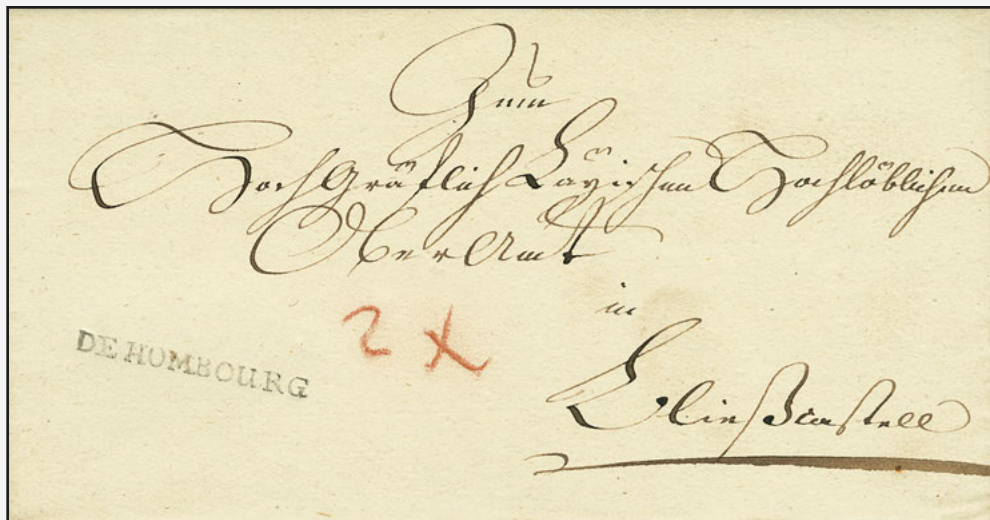 Zum
HochGräflich Layischen Hochlöblichen
OberAmt
in
Bließcastell
2 X
DE HOMBOURG